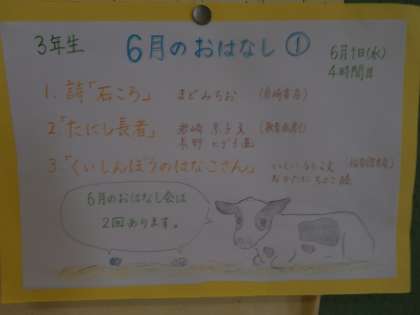 3年生
6月のおはなし ①
6月1日(水)
4時間目
1. 詩「石ころ」 まどみちお
2「たにし長者」 岩崎 京子 文
長野 ヒデ子 画
3「くいしんぼうのはなこさん」 いしい ももこ 文
なかたに ちよこ 絵
6月のおはなし会は
2回あります。